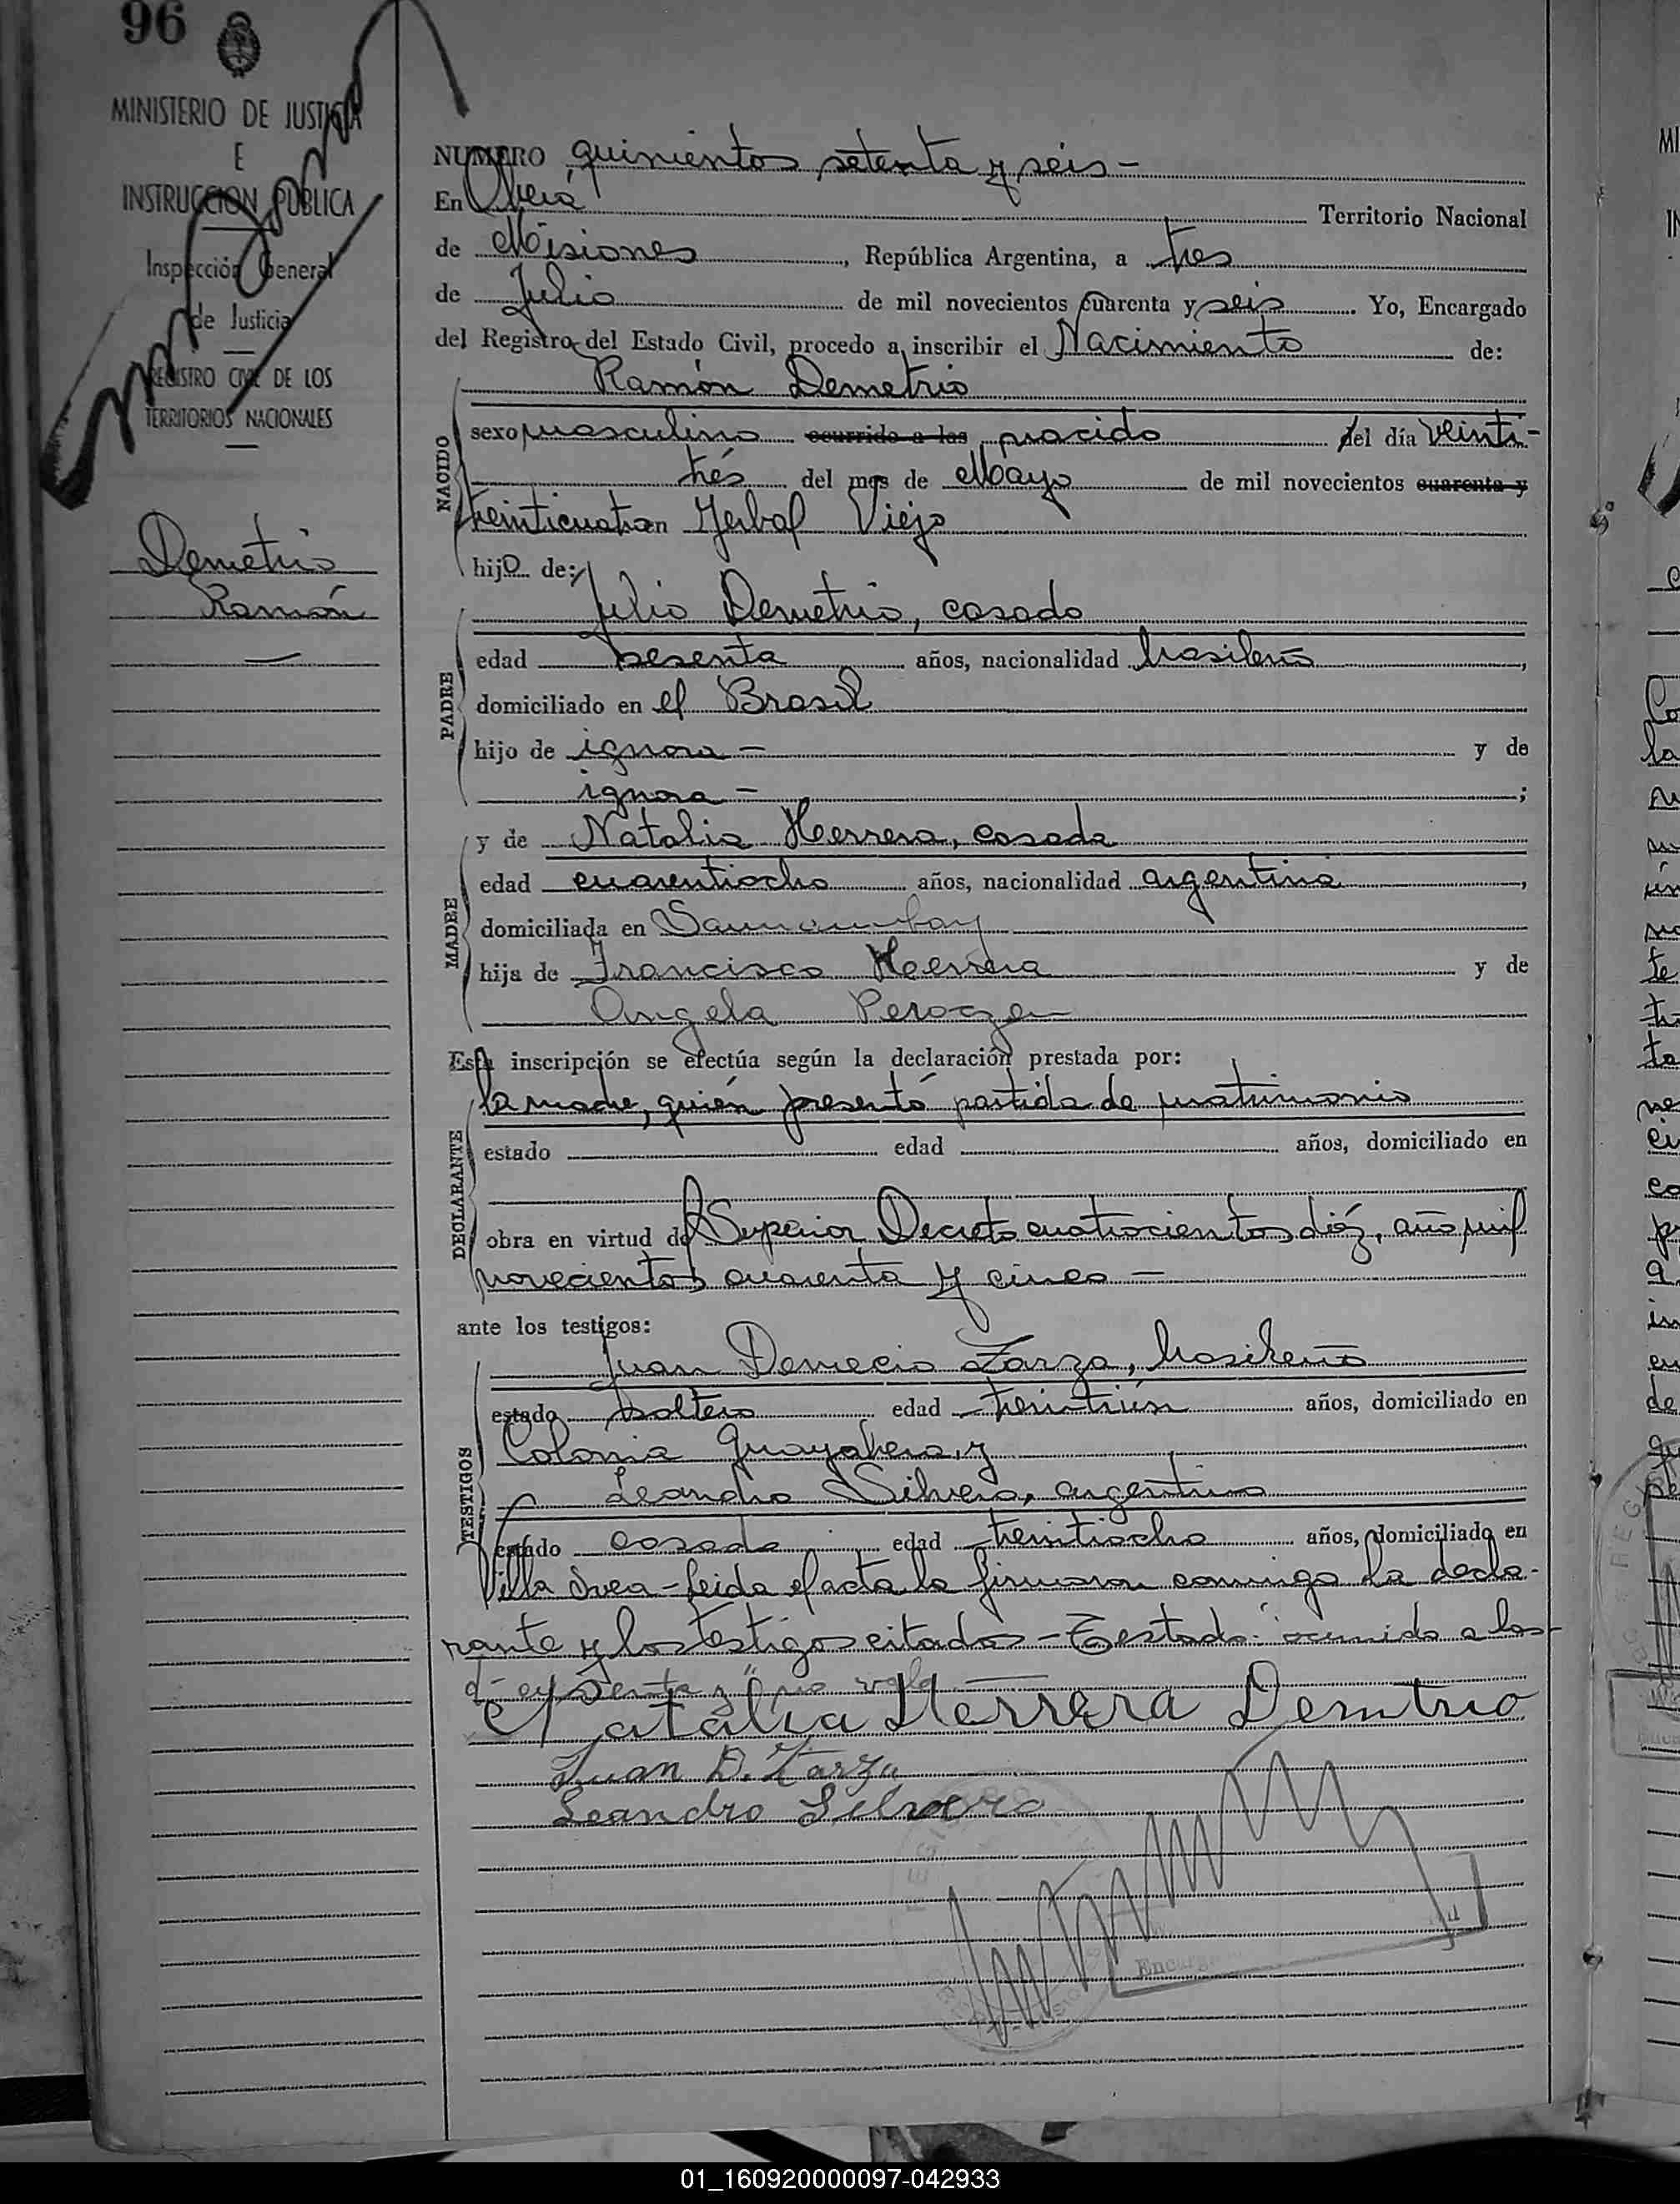 96
MINISTERIO DE JUSTICIA
E
INSTRUCCION PUBLICA
Inspección General
de Justicia
REGISTRO CIVIL DE LOS
TERRITORIOS NACIONALES
Demetrio
Ramón
NUMERO quinientos setenta y seis -
En Oberá Territorio Nacional
de Misiones, República Argentina, a tres
de Julio de mil novecientos cuarenta y seis. Yo, Encargado
del Registro del Estado Civil, procedo a inscribir el Nacimiento de:
NACIDO
Ramón Demetrio
sexo masculino ocurrido a las nacido del día veinti-
trés del mes de Mayo de mil novecientos cuarenta y
treinticuatro en Yerbal Viejo
hijo de:
PADRE
Julio Demetrio, casado
edad sesenta años, nacionalidad brasileño,
domiciliado en el Brasil
hijo de ignora - y de
ignora - ;
MADRE
y de Natalia Herrera, casada
edad cuarentiocho años, nacionalidad argentina,
domiciliada en
hija de Francisco Herrera y de
Angela
Esta inscripción se efectúa según la declaración prestada por:
DECLARANTE
la madre, quién presentó partida de matrimonio
estado edad años, domiciliado en
obra en virtud del Superior Decreto cuatrocientos diéz, año mil
novecientos cuarenta y cinco -
ante los testigos:
TESTIGOS
Juan Demecio Zarza, brasileño
estado soltero edad treintiún años, domiciliado en
Colonia Guayabera, y
Leandro Silvero, argentino
estado casado edad treintiocho años, domiciliado en
Villa Svea - leida el acta la firmaron conmigo la decla-
rante y los testigos citados - Testado: "ocurrido a las -
d - cuarenta y" no vale
Natalia Herrera Demtrio
Juan D. Zarza
Leandro Silvero
Encarg
01_160920000097-042933